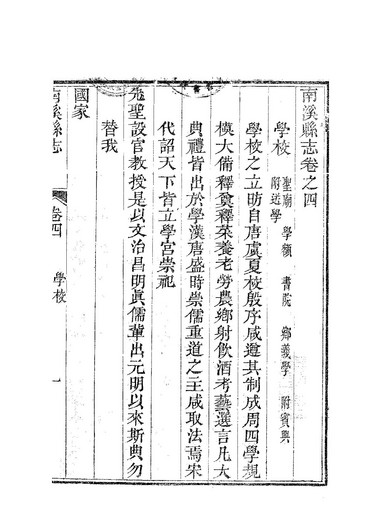 南溪縣志卷之四
學校 聖廟 學額 書院 鄉義學 附賓興
附送學
學校之立昉自唐虞夏校殷序咸遵其制成周四學規
模大備釋奠釋菜養老勞農鄉射飲酒考藝選言凡大
典禮皆出於學漢唐盛時崇儒重道之主咸取法焉宋
代詔天下皆立學宮崇祀
先聖設官教授是以文治昌明真儒輩出元明以來斯典勿
替我
國家
南溪縣志 卷四 學校 一